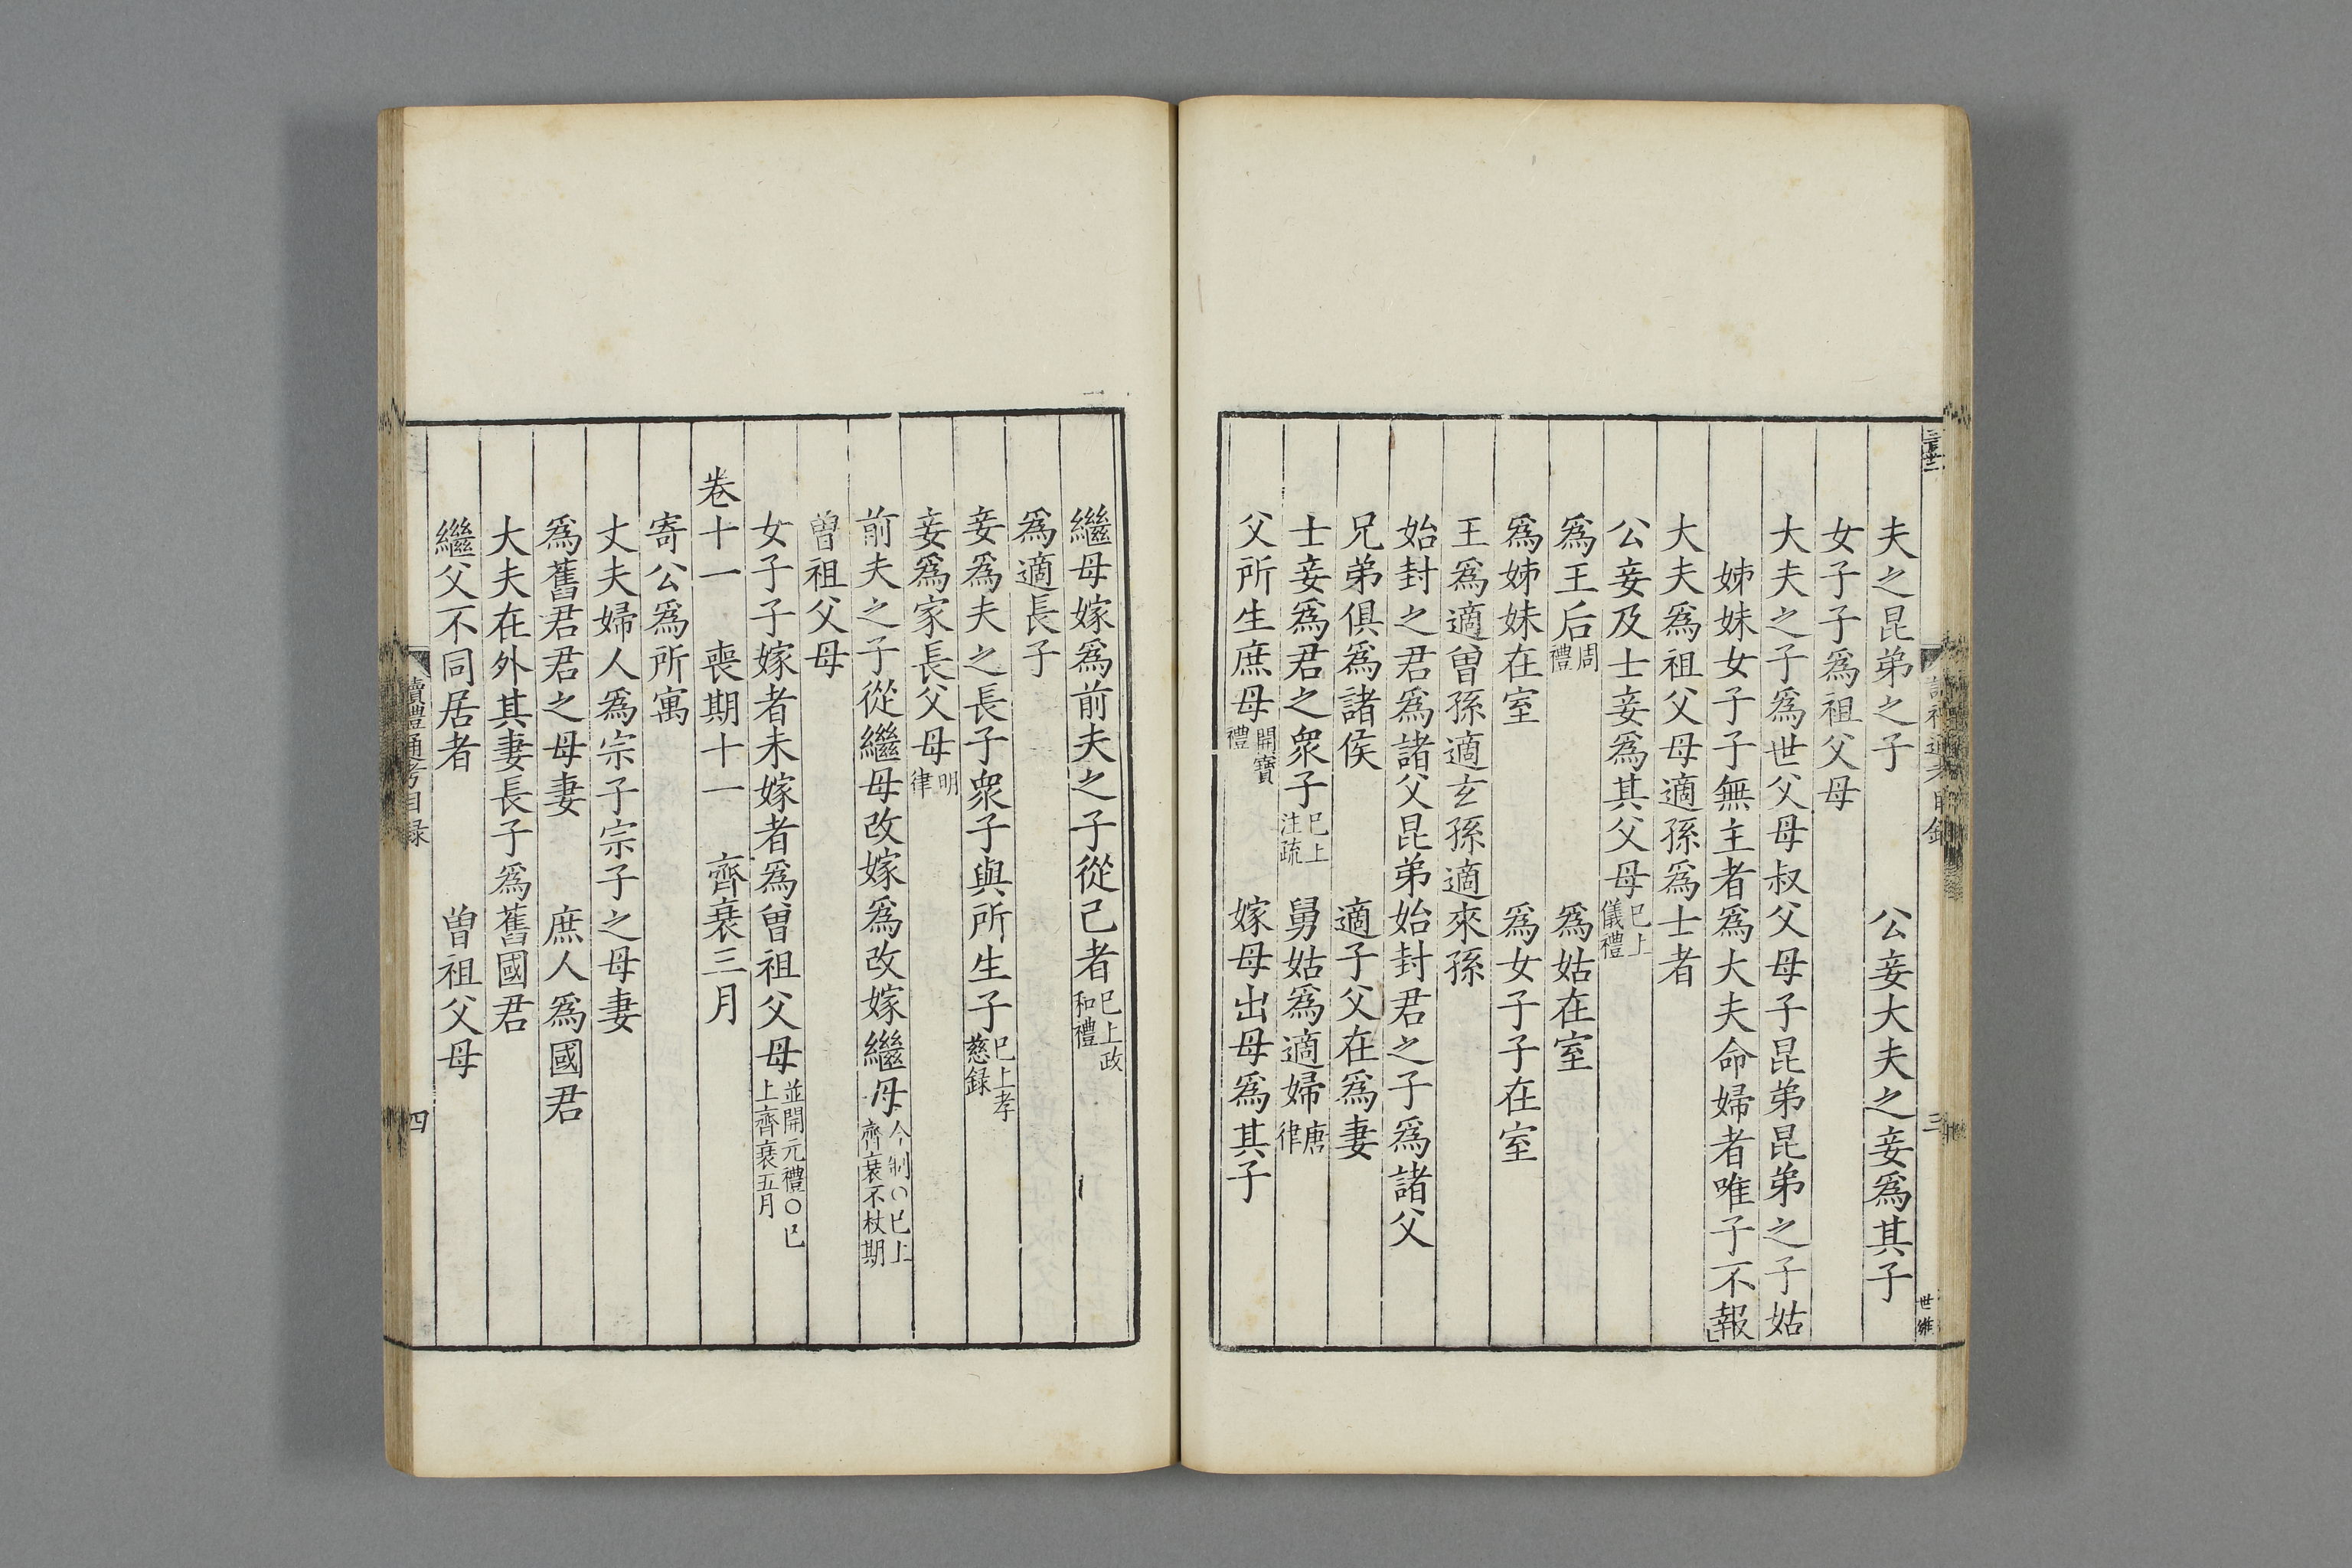 夫之昆弟之子　公妾大夫之妾爲其子
女子子爲祖父母
大夫之子爲世父母叔父母子昆弟昆弟之子姑
姊妹女子子無主者爲大夫命婦者唯子不報
大夫爲祖父母適孫爲士者
公妾及士妾爲其父母巳上儀禮
爲王后周禮　爲姑在室
爲姊妹在室　爲女子子在室
王爲適曾孫適玄孫適來孫
始封之君爲諸父昆弟始封君之子爲諸父
兄弟俱爲諸侯　適子父在爲妻
士妾爲君之衆子巳上注疏　舅姑爲適婦唐律
父所生庶母開寶禮　嫁母出母爲其子
三
世維
繼母嫁爲前夫之子從己者巳上政和禮
爲適長子
妾爲夫之長子衆子與所生子巳上孝慈録
妾爲家長父母明律
前夫之子從繼母改嫁爲改嫁繼母今制○巳上齊衰不杖期
曾祖父母
女子子嫁者未嫁者爲曾祖父母並開元禮○巳上齊衰五月
卷十一　喪期十一　齊衰三月
寄公爲所寓
丈夫婦人爲宗子宗子之母妻
爲舊君君之母妻　庶人爲國君
大夫在外其妻長子爲舊國君
繼父不同居者　曾祖父母
讀禮通考目録
四